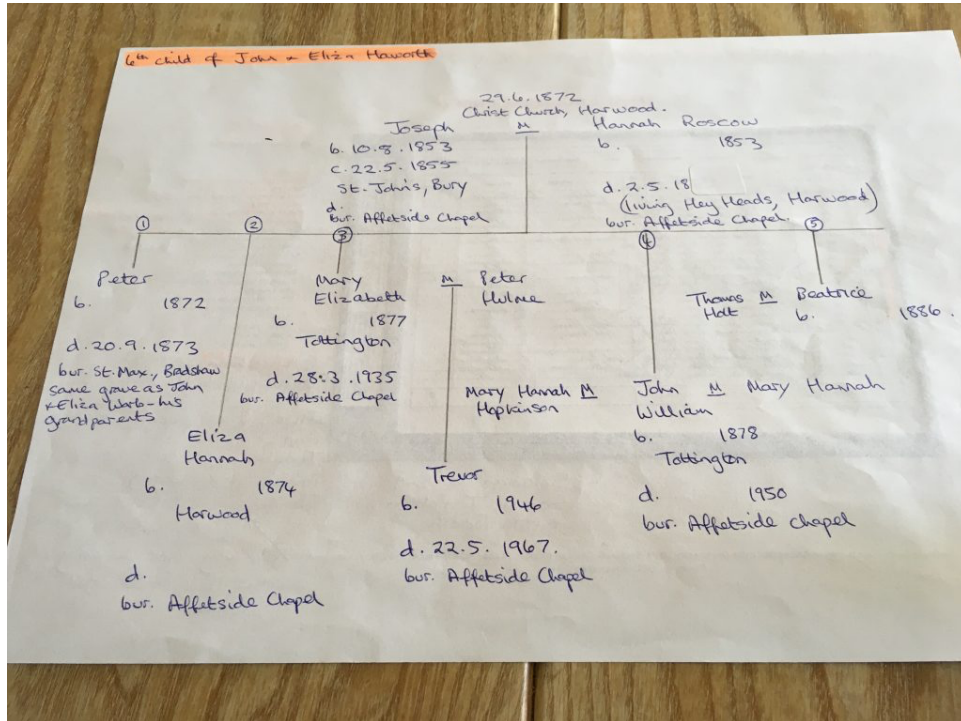 6th child of John & Eliza Haworth
29.6.1872
Christ Church, Harwood.
Joseph M Hannah Roscow
b. 10.8.1853
c. 22.5.1855
St. John's, Bury
d.
bur. Affetside Chapel
b. 1853
d. 2.5.18
(living Hey Heads, Harwood)
bur. Affetside Chapel.
1 2 3 4 5
Peter
b. 1872
d. 20.9.1873
bur. St. Max., Bradshaw
same grave as John
& Eliza - his
grandparents
Eliza
Hannah
b. 1874
Harwood
d.
bur. Affetside Chapel
Mary
Elizabeth
b. 1877
Tottington
d. 28.3.1935
bur. Affetside Chapel
M Peter
Hulme
Trevor
b. 1946
d. 22.5.1967.
bur. Affetside Chapel
Mary Hannah M
Hopkinson
John M Mary Hannah
William
b. 1878
Tottington
d. 1950
bur. Affetside Chapel
Thomas M Beatrice
Holt b. 1886.